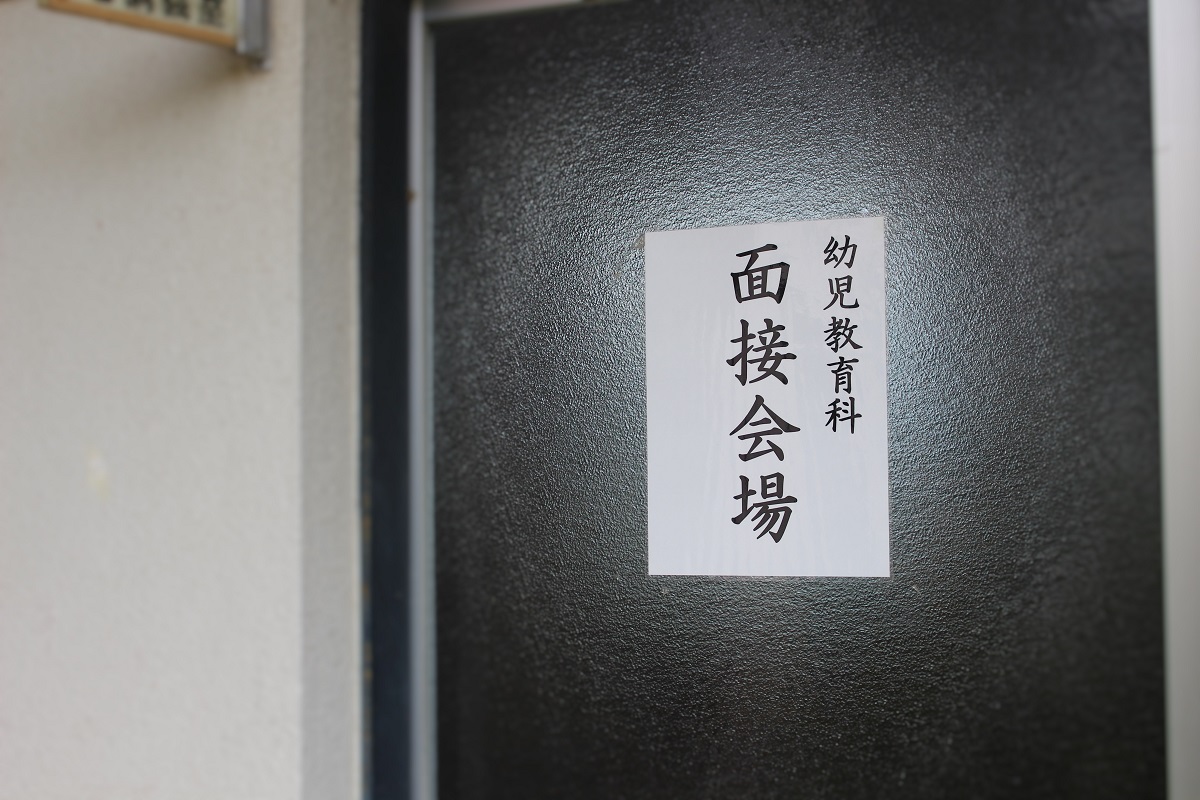 幼児教育科
面接会場